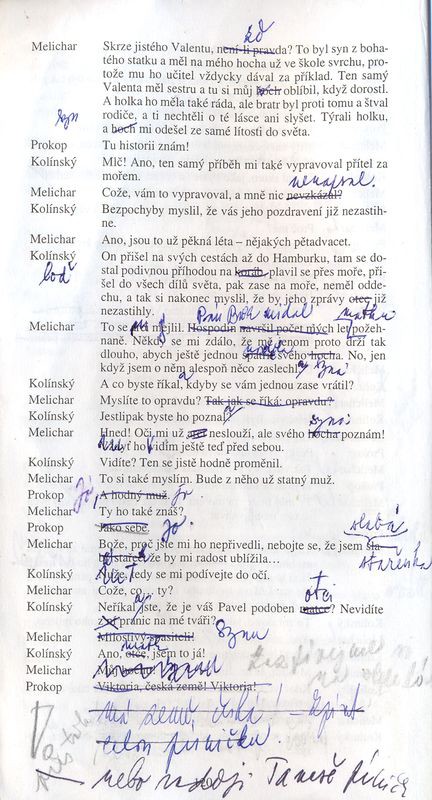 kď
Melichar Skrze jistého Valentu, není-li pravda? To byl syn z boha-
tého statku a měl na mého hocha už ve škole svrchu, pro-
tože mu ho učitel vždycky dával za příklad. Ten samý
Valenta měl sestru a tu si můj hoch oblíbil, když dorostl.
A holka ho měla také ráda, ale bratr byl proti tomu a štval
syn rodiče, a ti nechtěli o té lásce ani slyšet. Týrali holku,
a hoch mi odešel ze samé lítosti do světa.
Prokop Tu historii znám!
Kolínský Mlč! Ano, ten samý příběh mi také vypravoval přítel za
mořem.
nenapsal.
Melichar Cože, vám to vypravoval, a mně nic nevzkázal?
Kolínský Bezpochyby myslil, že vás jeho pozdravení již nezastih-
ne.
Melichar Ano, jsou to už pěkná léta – nějakých pětadvacet.
Kolínský On přišel na svých cestách až do Hamburku, tam se do-
loď stal podivnou příhodou na koráb, plavil se přes moře, při-
šel do všech dílů světa, pak zase na moře, neměl odde-
chu, a tak si nakonec myslil, že by jeho zprávy otec již
nezastihly.
Pán Bůh matku
Melichar To se mejlil. Hospodin navršil počet mých let požeh-
naně. Někdy se mi zdálo, že mě jenom proto drží tak
dlouho, abych ještě jednou spatřil svého hocha. No, jen
když jsem o něm alespoň něco zaslechl.
Kolínský A co byste říkal, kdyby se vám jednou zase vrátil?
Melichar Myslíte to opravdu? Tak jak se říká: opravdu?
Kolínský Jestlipak byste ho poznal?
syna
Melichar Hned! Oči mi už neslouží, ale svého hocha poznám!
ho vidím ještě teď před sebou.
Kolínský Vidíte? Ten se jistě hodně proměnil.
Melichar To si také myslím. Bude z něho už statný muž.
Prokop Jó, A hodný muž. Jo
Melichar Ty ho také znáš?
Prokop Jako sebe. Jo.
slabá
Melichar Bože, proč jste mi ho nepřivedli, nebojte se, že jsem sla-
stařenka
bý stařec, že by mi radost ublížila…
Kolínský Nuže, tedy se mi podívejte do očí.
Melichar Cože, co, ty?
otci
Kolínský Neříkal jste, že je váš Pavel podoben matce? Nevidíte
pranic na mé tváři?
Melichar Milostivý spasiteli! Synu
Kolínský Ano, otče, jsem to já!
Melichar
Prokop Viktoria, česká země! Viktoria!
má země česká!
celou písničku.
nebo